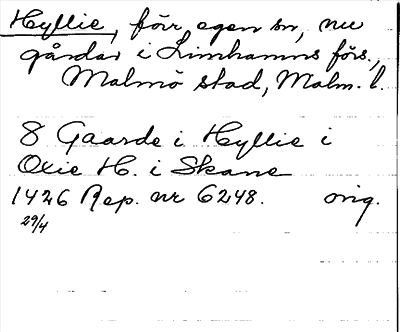 Hyllie, förr egen sn, nu
gårdar i Limhamns förs.,
Malmö stad, Malm. l.
8 Gaarde i Hyllie i
Oxie H. i Skane
1426 Rep. nr 6248. orig.
29/4